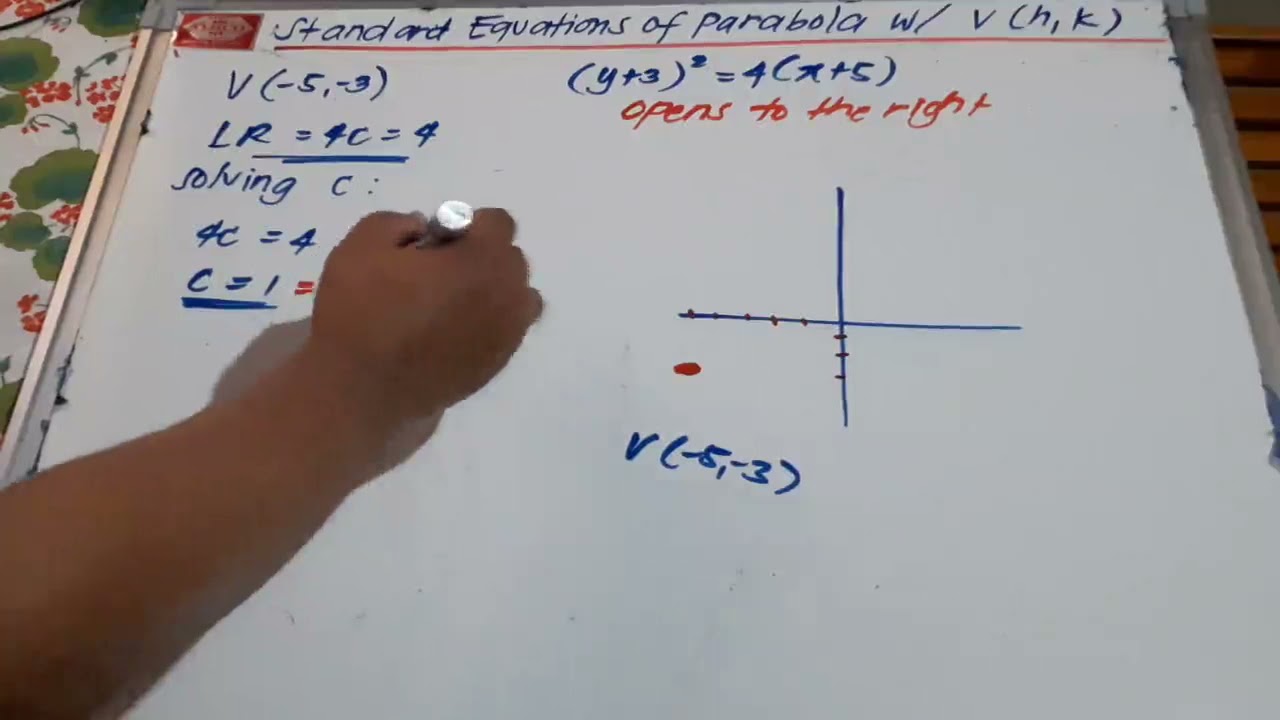 Standard Equations of Parabola w/ V(h,k)
V(-5,-3)
(y+3)² = 4(x+5)
opens to the right
LR = 4C = 4
solving C:
4C = 4
C = 1 =
V(-5,-3)